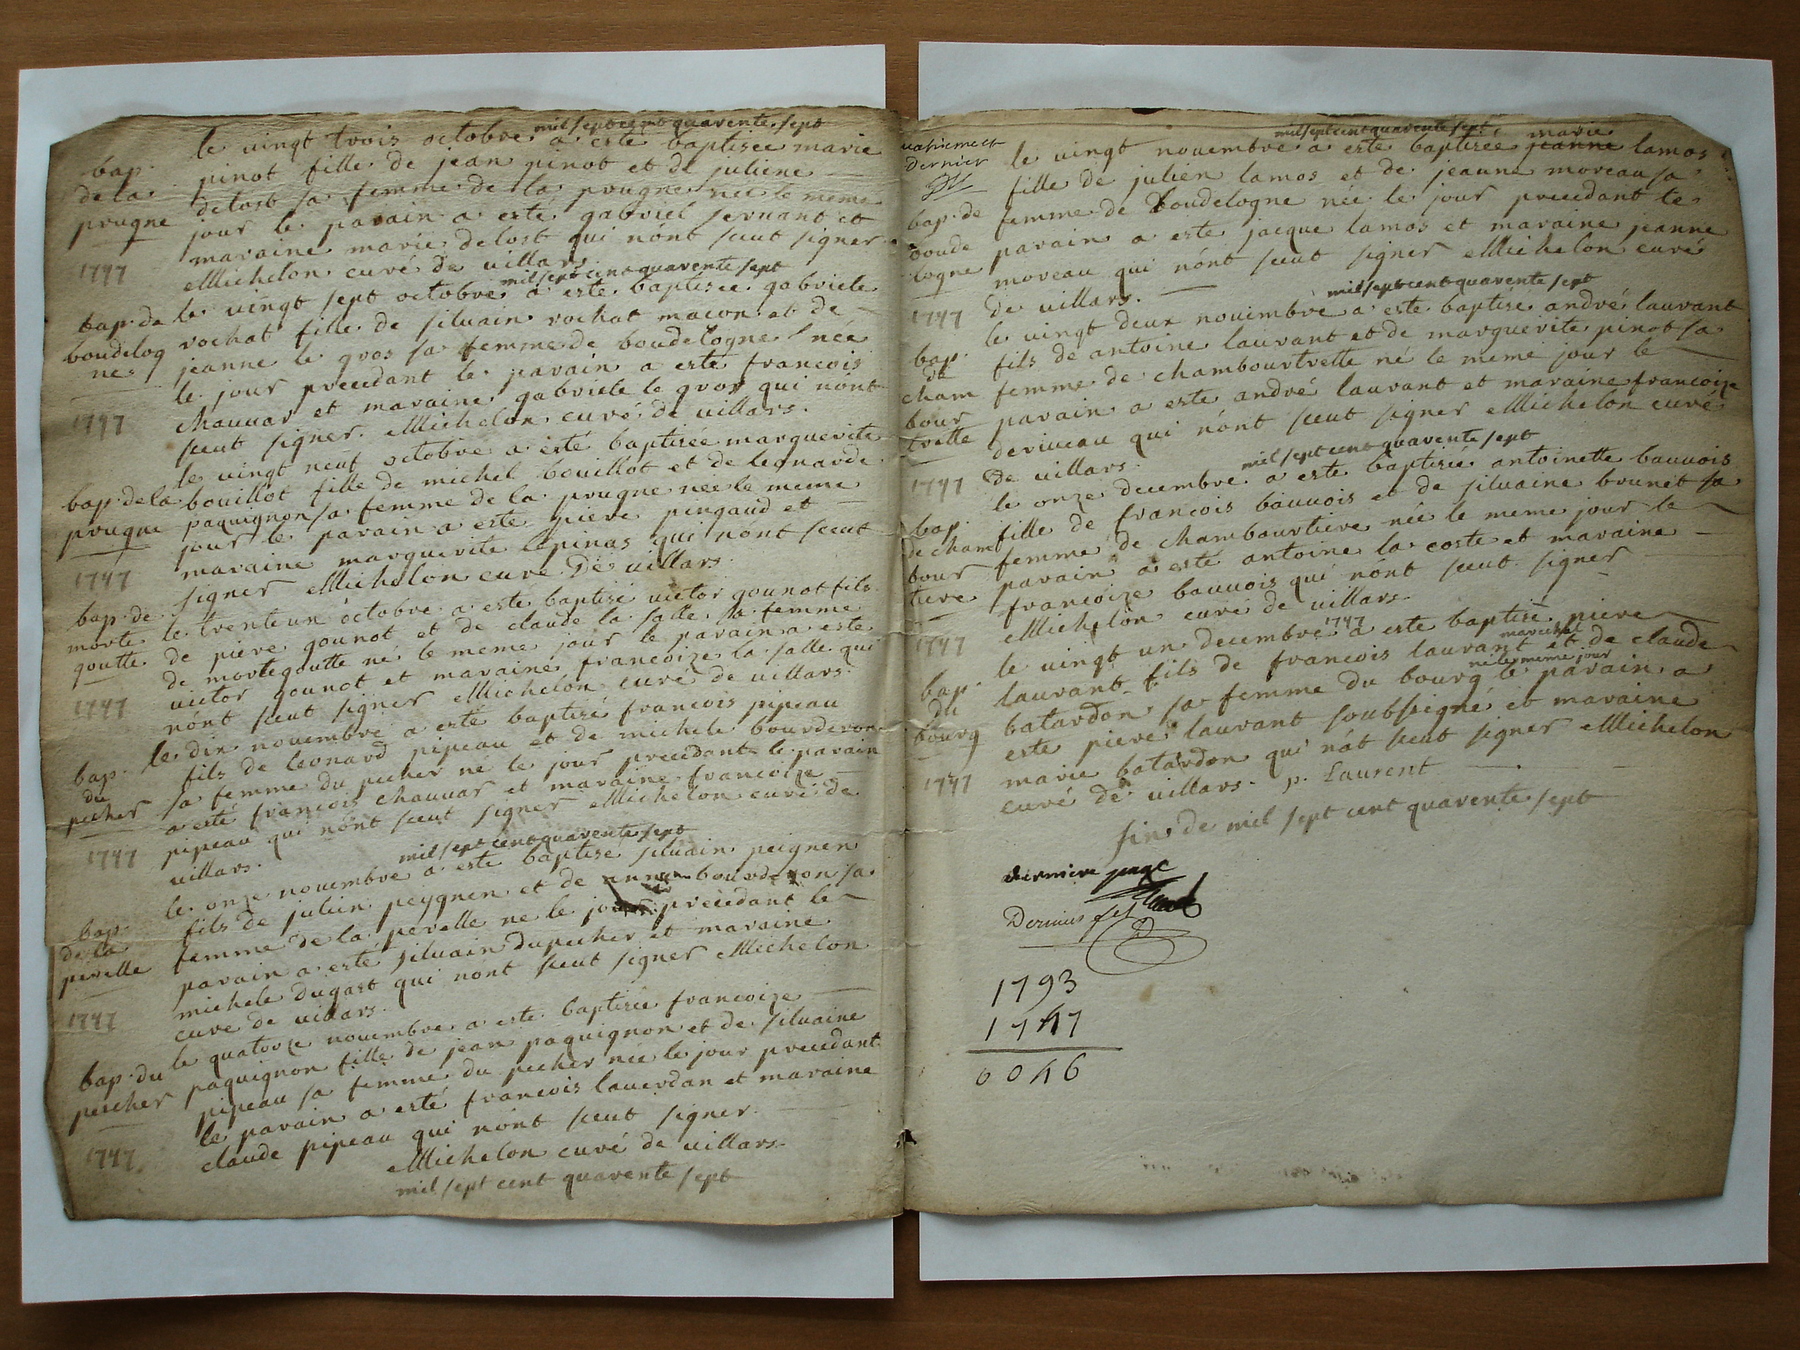 mil sept cent quarente sept
le vingt trois octobre a esté baptisée marie
bap.
pinot fille de jean pinot et de juliene
de la
delost sa femme de la prugne née le meme
prugne
jour le parain a esté gabriel servant et
maraine marie delost qui nónt sceut signer
1747
Michelon curé de villars
mil sept cent quarente sept
le vingt sept octobre a esté baptisée gabriele
bap. de
rochat fille de siluain rochat macon et de
boudelog
jeanne le gros sa femme de boudelogne née
ne
le jour precedant le parain a esté francois
chauuar et maraine gabriele le gros qui nónt
1747
sceut signer. Michelon curé de villars.
le vingt neuf octobre a esté baptisée marguerite
bap. de la
bouillot fille de michel bouillot et de leonarde
prugne
paquignon sa femme de la prugne née le meme
jour le parain a esté piere pingaud et
maraine marguerite lepinas qui nónt sceut
1747
signer Michelon curé De villars
bap. de
le trente un octobre a esté baptisé victor gounot fils
morte
de piere gounot et de claude la salle sa femme
goutte
de mortegoutte né le meme jour le parain a esté
victor gounot et maraine francoize la salle qui
1747
nónt sceut signer Michelon curé de villars.
le dix nouembre a esté baptisé francois pipeau
bap.
fils de leonard pipeau et de michele bourderon
du
sa femme du pecher né le jour precedant le parain
pecher
a esté francois chauuar et maraine francoize
pipeau qui nónt sceut signer Michelon curé de
1747
villars.
mil sept cent quarente sept
le onze nouembre a esté baptisé siluain peignen
fils de julien peygnen et de bourderon sa
bap.
femme de la perelle né le jour precedant le
de la
parain a esté siluain dupecher et maraine
perelle
michele dugast qui nont sceut signer Michelon
1747
curé de villars.
le quatorze nouembre a esté baptisée francoize
bap. du
paquignon fille de jean paquignon et de siluaine
pescher
pipeau sa femme du pecher née le jour precedant
le parain a esté francois lauerdan et maraine
1747
claude pipeau qui nónt sceut signer.
Michelon curé de villars.
mil sept cent quarente sept
dernier
mil sept cent quarente sept
marie
le vingt nouembre a esté baptisée jeanne lamos
fille de julien lamos et de jeanne moreau sa
bap. de
femme de boudelogne née le jour precedant le
boude
parain a esté jacque lamos et maraine jeanne
logne
moreau qui nónt sceut signer Michelon curé
de villars.
1747
mil sept cent quarente sept
le vingt deux nouembre a esté baptisé andré laurant
bap.
fils de antoine laurant et de marguerite pinot sa
de
femme de chambourtrette né le meme jour le
cham
parain a esté andré laurant et maraine francoize
bour
deriueau qui nónt sceut signer Michelon curé
trette
De villars.
1747
mil sept cent quarente sept
le onze decembre a esté baptisée antoinette bauuois
bap.
fille de francois bauuois et de siluaine brunet sa
de cham
femme de chambourtiere née le meme jour le
bour
parain a esté antoine la coste et maraine
tiere
francoize bauuois qui nónt sceut signer
Michelon curé de villars.
1747
1747
le vingt un decembre a esté baptisé piere
bap.
laurant fils de francois laurant et de claude
du
né le meme jour
batardon sa femme du bourg le parain a
bourg
esté piere laurant soubsigné et maraine
marie batardon qui nát sceut signer Michelon
1747
curé de villars. p. Laurent
fin de mil sept cent quarente sept
derniere page
1793
1747
0046